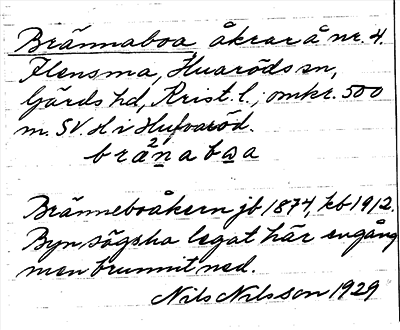 Brännaboa, åkrar å nr. 4.
Flensma, Huaröds sn,
Gärds hd, Krist. l., omkr. 500
m. SV. H i Hufvaröd.
bräṉabaa
Bränneboåkern jb 1874, kb 1912.
Byn, sägs ha legat här en gång
men brunnit ned.
Nils Nilsson 1929